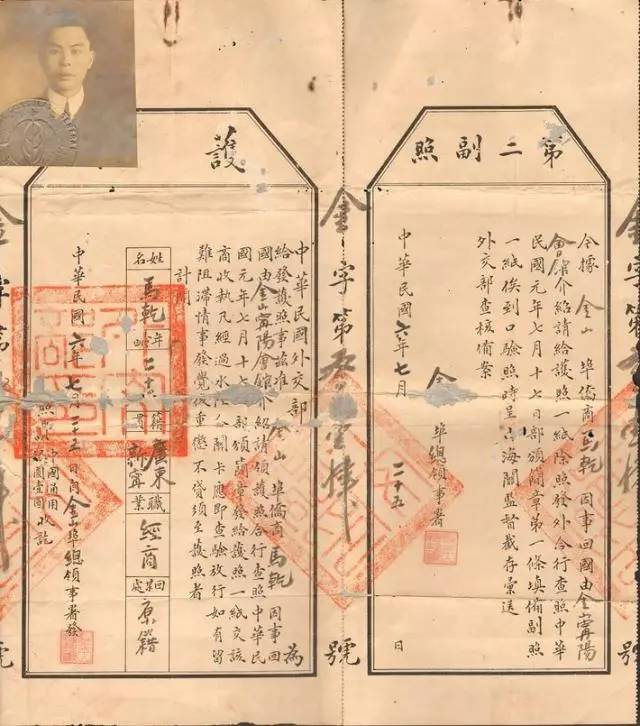 第二副照
今據金山埠僑商馬乾因事回國由金山甯陽
會館介紹請給護照一紙除照發外合行查照中華
民國元年七月十七日部頒簡章第一條填備副照
一紙俟到口驗照時呈由海關監督裁存彙送
外交部查核備案
金埠總領事署
中華民國六年七月二十五日
金字第五壹肆號
護
中華民國外交部為
給發護照事茲准金山埠僑商馬乾因事回
國由金山甯陽會館介紹請領護照合行查照中華民
國元年七月十七日部頒簡章發給護照一紙交該
商收執凡經過水陸關卡應即查驗放行如有留
難阻滯情事發覺後重懲不貸須至護照者
計開
姓名 馬乾
年歲
籍貫 廣東新寧
職業 經商
回某處 原籍
中華民國六年七月二十五日由金山埠總領事署發
照費中國通用銀圓壹圓收訖
金字第
號